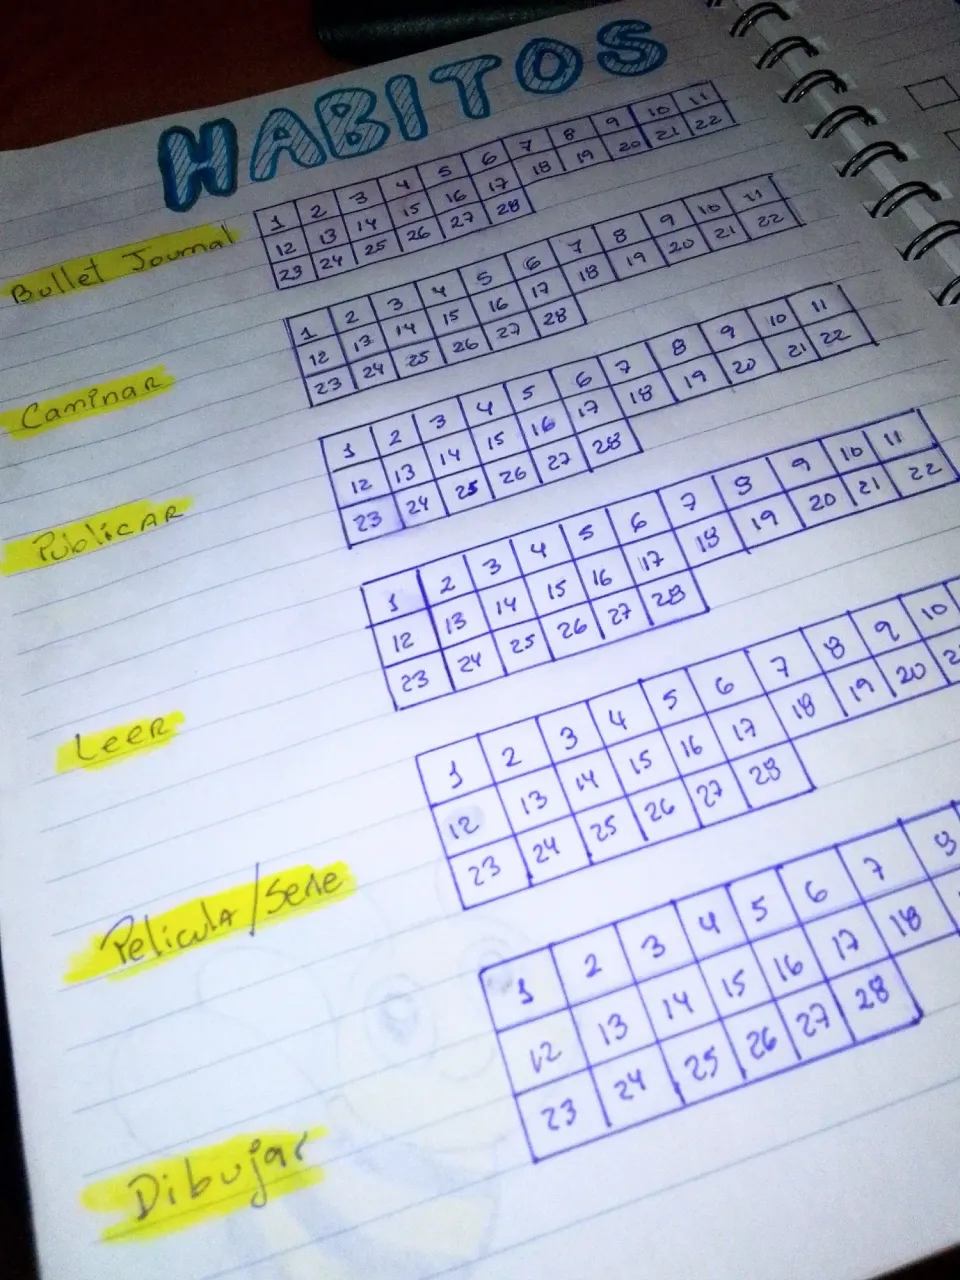 HABITOS
Bullet Journal
1 2 3 4 5 6 7 8 9 10 11
12 13 14 15 16 17 18 19 20 21 22
23 24 25 26 27 28
Caminar
1 2 3 4 5 6 7 8 9 10 11
12 13 14 15 16 17 18 19 20 21 22
23 24 25 26 27 28
Publicar
1 2 3 4 5 6 7 8 9 10 11
12 13 14 15 16 17 18 19 20 21 22
23 24 25 26 27 28
Leer
1 2 3 4 5 6 7 8 9 10 11
12 13 14 15 16 17 18 19 20 21 22
23 24 25 26 27 28
Pelicula/Serie
1 2 3 4 5 6 7 8 9 10
12 13 14 15 16 17 18 19 20
23 24 25 26 27 28
Dibujar
1 2 3 4 5 6 7
12 13 14 15 16 17 18
23 24 25 26 27 28